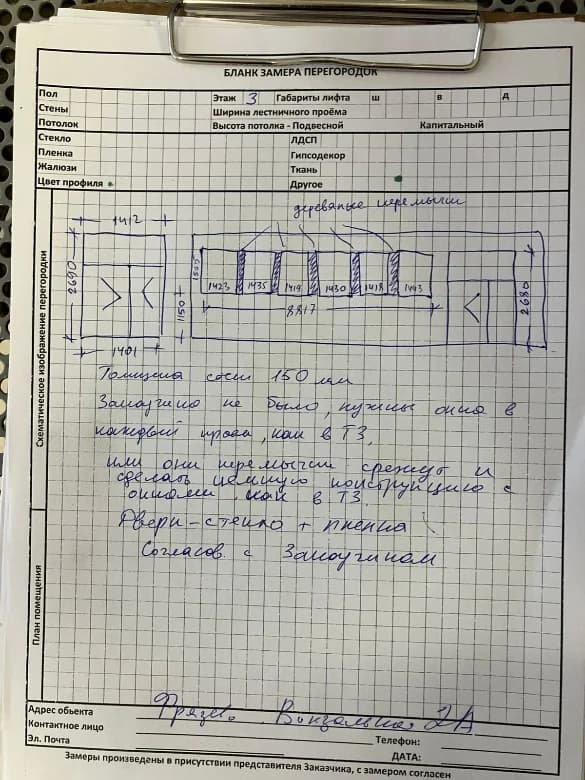 БЛАНК ЗАМЕРА ПЕРЕГОРОДОК
Пол
Этаж 3 Габариты лифта ш в д
Стены
Ширина лестничного проёма
Потолок
Высота потолка - Подвесной Капитальный
Стекло
ЛДСП
Пленка
Гипсодекор
Жалюзи
Ткань
Цвет профиля
Другое
Схематическое изображение перегородки
деревяные перемычки
1412
2690
1401
1150
1555
1423 1435 1419 1430 1418 1443
8817
2680
Толщина стен 150 мм
не было, нужны окна в
каждый проем, как в ТЗ,
или они перемычки срежут и
сделать цельную конструкцию с
окнами, как в ТЗ.
Двери - стекло + пленка
Согласов. с
План помещения
Адрес обьекта
Вокзальная 2А
Контактное лицо
Телефон:
Эл. Почта
ДАТА:
Замеры произведены в присутствии представителя Заказчика, с замером согласен